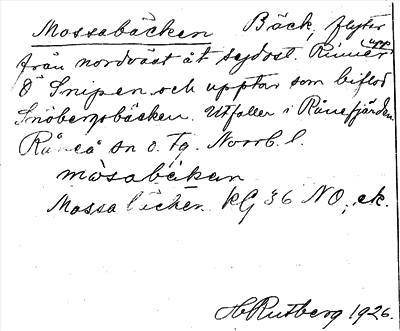 Mossabäcken Bäck, flyter
från nordväst åt sydost. Rinner upp
Ö Snipen och upptar som biflod
Snöbergsbäcken. Utfaller i Rånefjärden.
Råneå sn o. Tg. Norrb. l.
måsabäcken
Mossabäcken KG 36 NO; ek.
H Rutberg 1926.